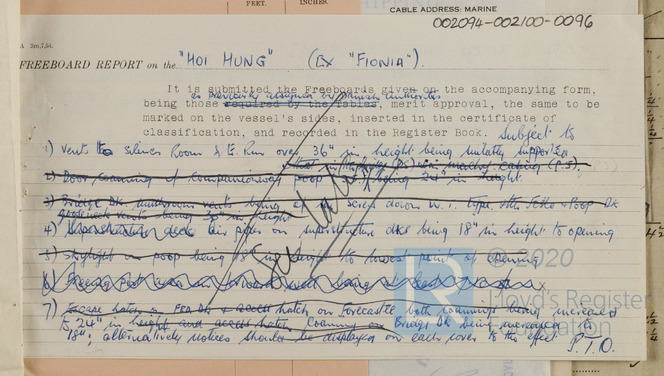 FEET. INCHES.
CABLE ADDRESS: MARINE
002094-002100-0096
A 2m,7,54.
FREEBOARD REPORT on the "HOI HUNG" (Ex "FIONIA").
It is submitted the Freeboards given on the accompanying form,
as previously assigned by Danish Authorities
being those required by the Tables, merit approval, the same to be
marked on the vessel's sides, inserted in the certificate of
classification, and recorded in the Register Book. Subject to
1) Vents to Silence Room & E. Rm over 36" in height being suitably supported
2) Door coaming of companionway poop being 24" in height
3) Bridge Dk. mushroom vents being screw down W.T. type Poop Dk
gooseneck vents being 30" in height
4) Superstructure deck air pipes on superstructure dks being 18" in height to opening
5) Skylight on poop being 18" in height to lowest point of opening
6)
7) Escape hatch access hatch on Forecastle both coamings being increased
to 24" in height and access hatch Coaming on Bridge Dk being increased to
18"; alternatively notices should be displayed on each cover to the effect P.T.O.
See
© 2020
Lloyd's Register
Foundation